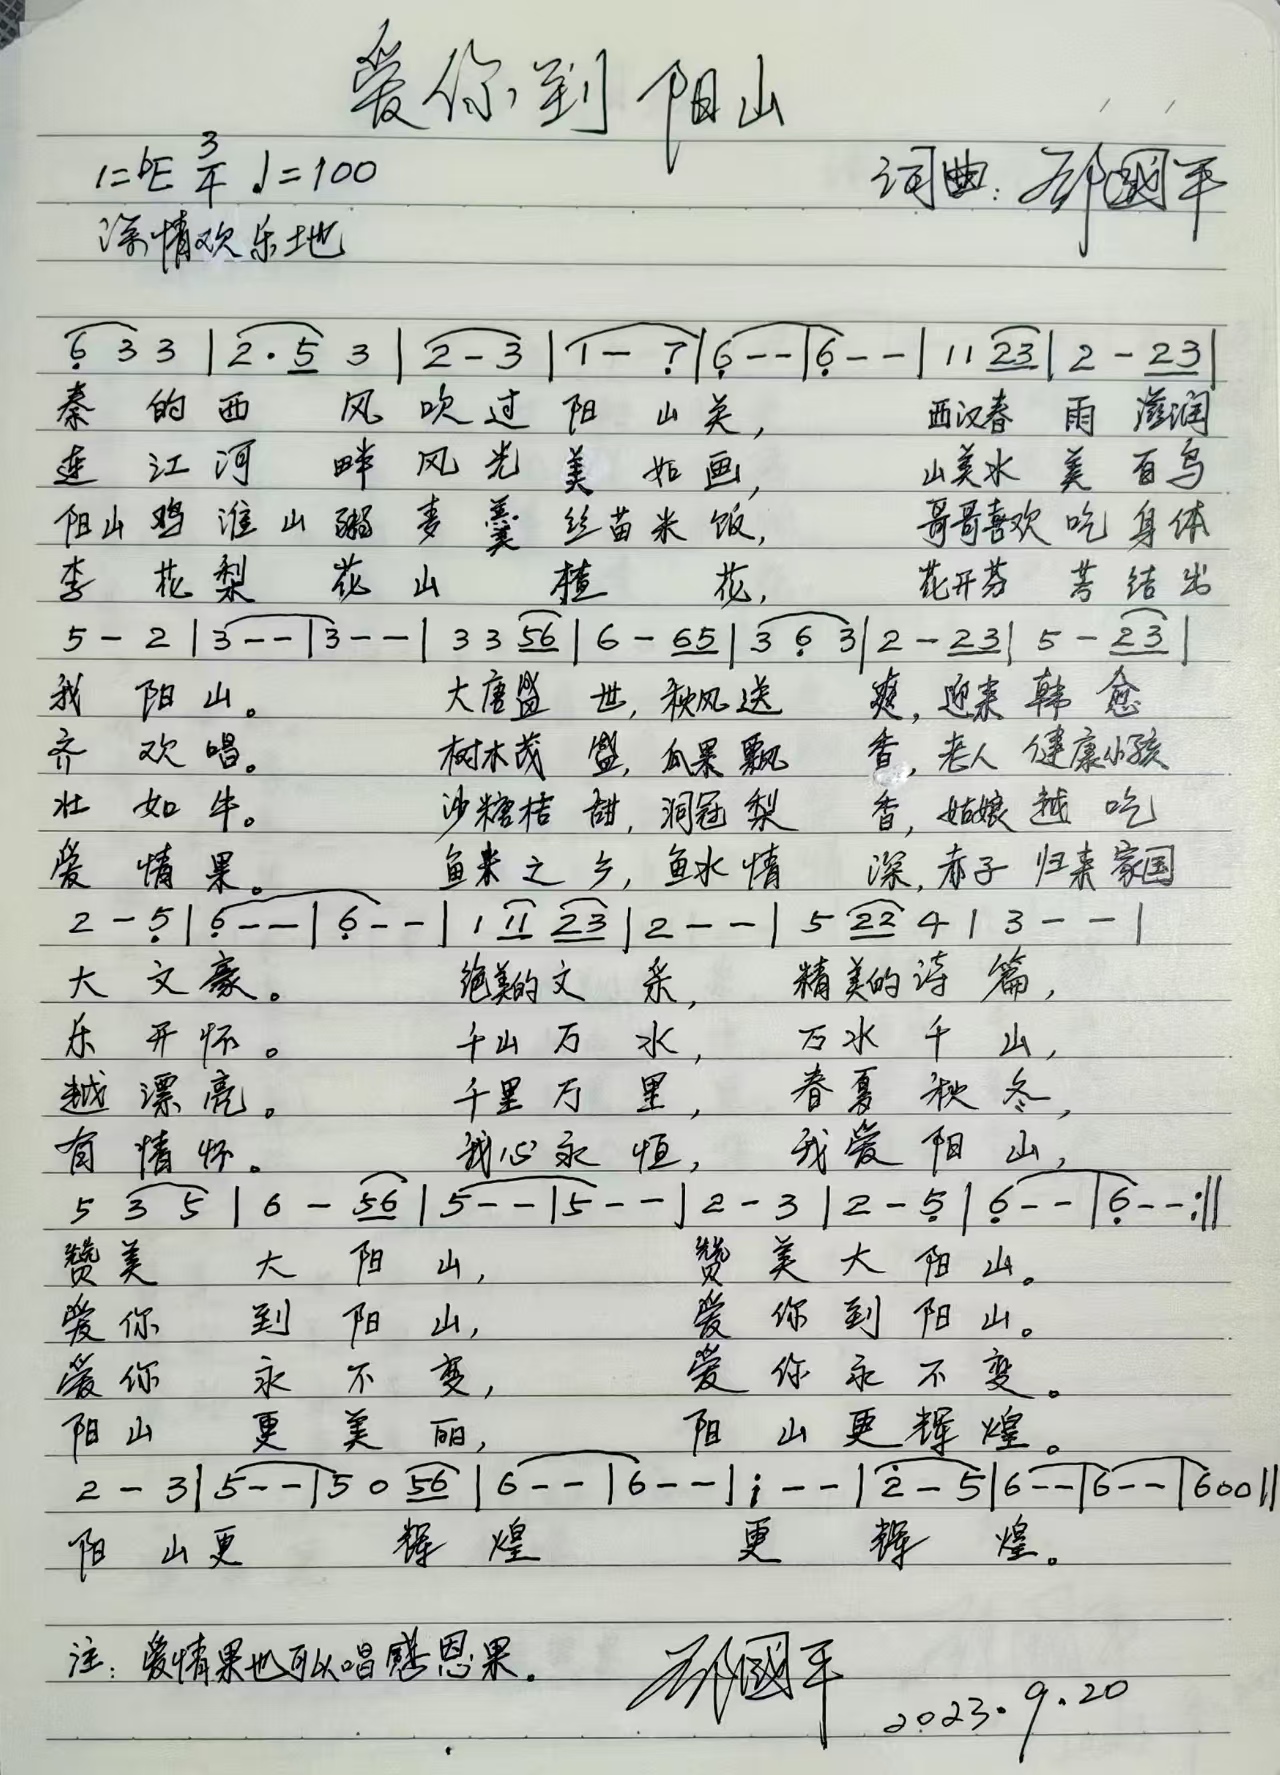 爱你到阳山
1=bE 3/4 ♩=100
词曲：邓國平
深情欢乐地
6̣ 3 3 | 2 · 5 3 | 2 - 3 | 1 - 7̣ | 6̣ - - | 6̣ - - | 1 1 2 3 | 2 - 2 3 |
秦的西风吹过阳山关，西汉春雨滋润
连江河畔风光美如画，山美水美百鸟
阳山鸡淮山粥麦羹丝苗米饭，哥哥喜欢吃身体
李花梨花山楂花，花开芬芳结出
5 - 2 | 3 - - | 3 - - | 3 3 5 6 | 6 - 6 5 | 3 6̣ 3 | 2 - 2 3 | 5 - 2 3 |
我阳山。大唐盛世，秋风送爽，迎来韩愈
齐欢唱。树木茂盛，瓜果飘香，老人健康小孩
壮如牛。沙糖桔甜，洞冠梨香，姑娘越吃
爱情果。鱼米之乡，鱼水情深，赤子归来家国
2 - 5̣ | 6̣ - - | 6̣ - - | 1 1 1 2 3 | 2 - - | 5 2 2 4 | 3 - - |
大文豪。绝美的文采，精美的诗篇，
乐开怀。千山万水，万水千山，
越漂亮。千里万里，春夏秋冬，
有情怀。我心永恒，我爱阳山，
5 3 5 | 6 - 5 6 | 5 - - | 5 - - | 2 - 3 | 2 - 5̣ | 6̣ - - | 6̣ - - :||
赞美大阳山，赞美大阳山。
爱你到阳山，爱你到阳山。
爱你永不变，爱你永不变。
阳山更美丽，阳山更辉煌。
2 - 3 | 5 - - | 5 0 5 6 | 6 - - | 6 - - | 1̇ - - | 2̇ - 5 | 6 - - | 6 - - | 6 0 0 ||
阳山更辉煌更辉煌。
注：爱情果也可以唱感恩果。
邓國平
2023.9.20